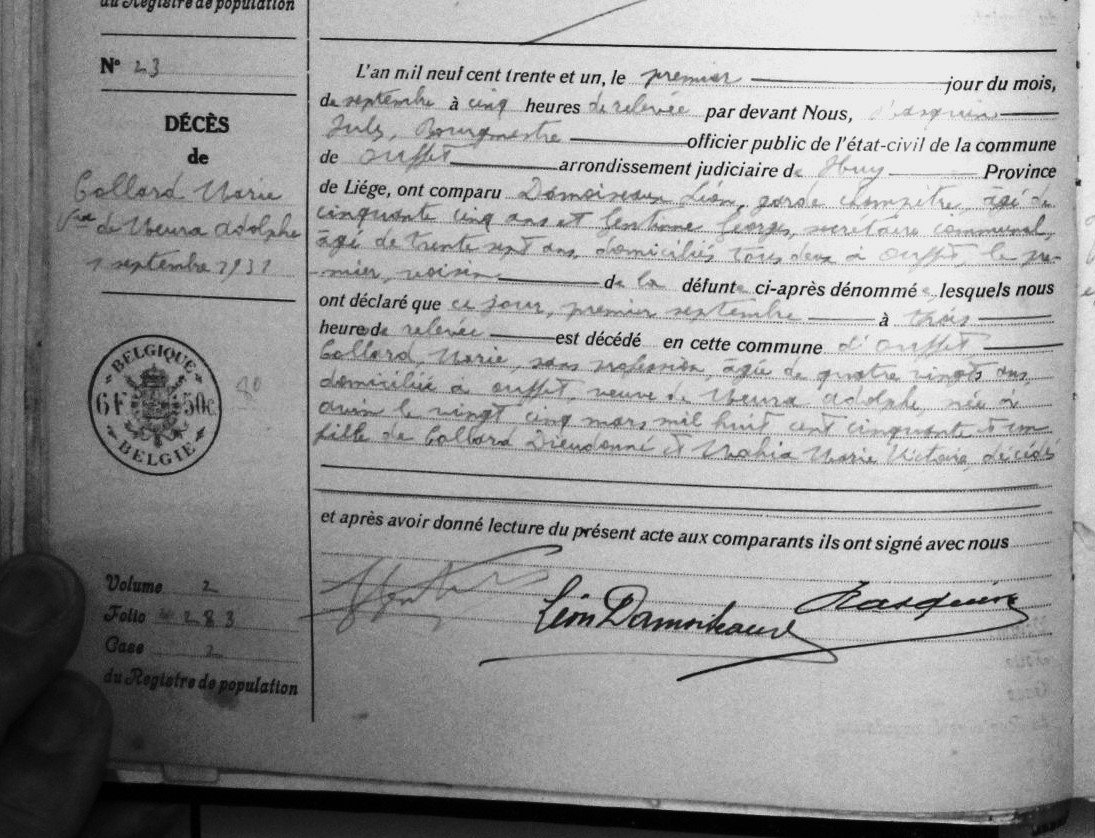 du Registre de population
N° 23
DÉCÈS
de
Collard Marie
Vve de Meura Adolphe
1 septembre 1931
BELGIQUE
6 F 50 c.
BELGIE
Volume 2
Folio 283
Case 2
du Registre de population
L'an mil neuf cent trente et un, le premier jour du mois,
de septembre à cinq heures de relevée par devant Nous, Rasquin
Jules, Bourgmestre officier public de l'état-civil de la commune
de Ouffet arrondissement judiciaire de Huy Province
de Liége, ont comparu Damoiseaux Léon, garde champêtre, âgé de
cinquante cinq ans et Georges, secrétaire communal,
âgé de trente sept ans, domiciliés tous deux à Ouffet, le pre-
mier, voisin de la défunte ci-après dénommée lesquels nous
ont déclaré que ce jour, premier septembre à trois
heures de relevée est décédé en cette commune d'Ouffet
Collard Marie, sans profession, âgée de quatre vingts ans,
domiciliée à Ouffet, veuve de Meura Adolphe, née à
le vingt cinq mars mil huit cent cinquante et un
fille de Collard Dieudonné et Mahia Marie Victoire, décédés
et après avoir donné lecture du présent acte aux comparants ils ont signé avec nous
Léon Damoiseaux Rasquin